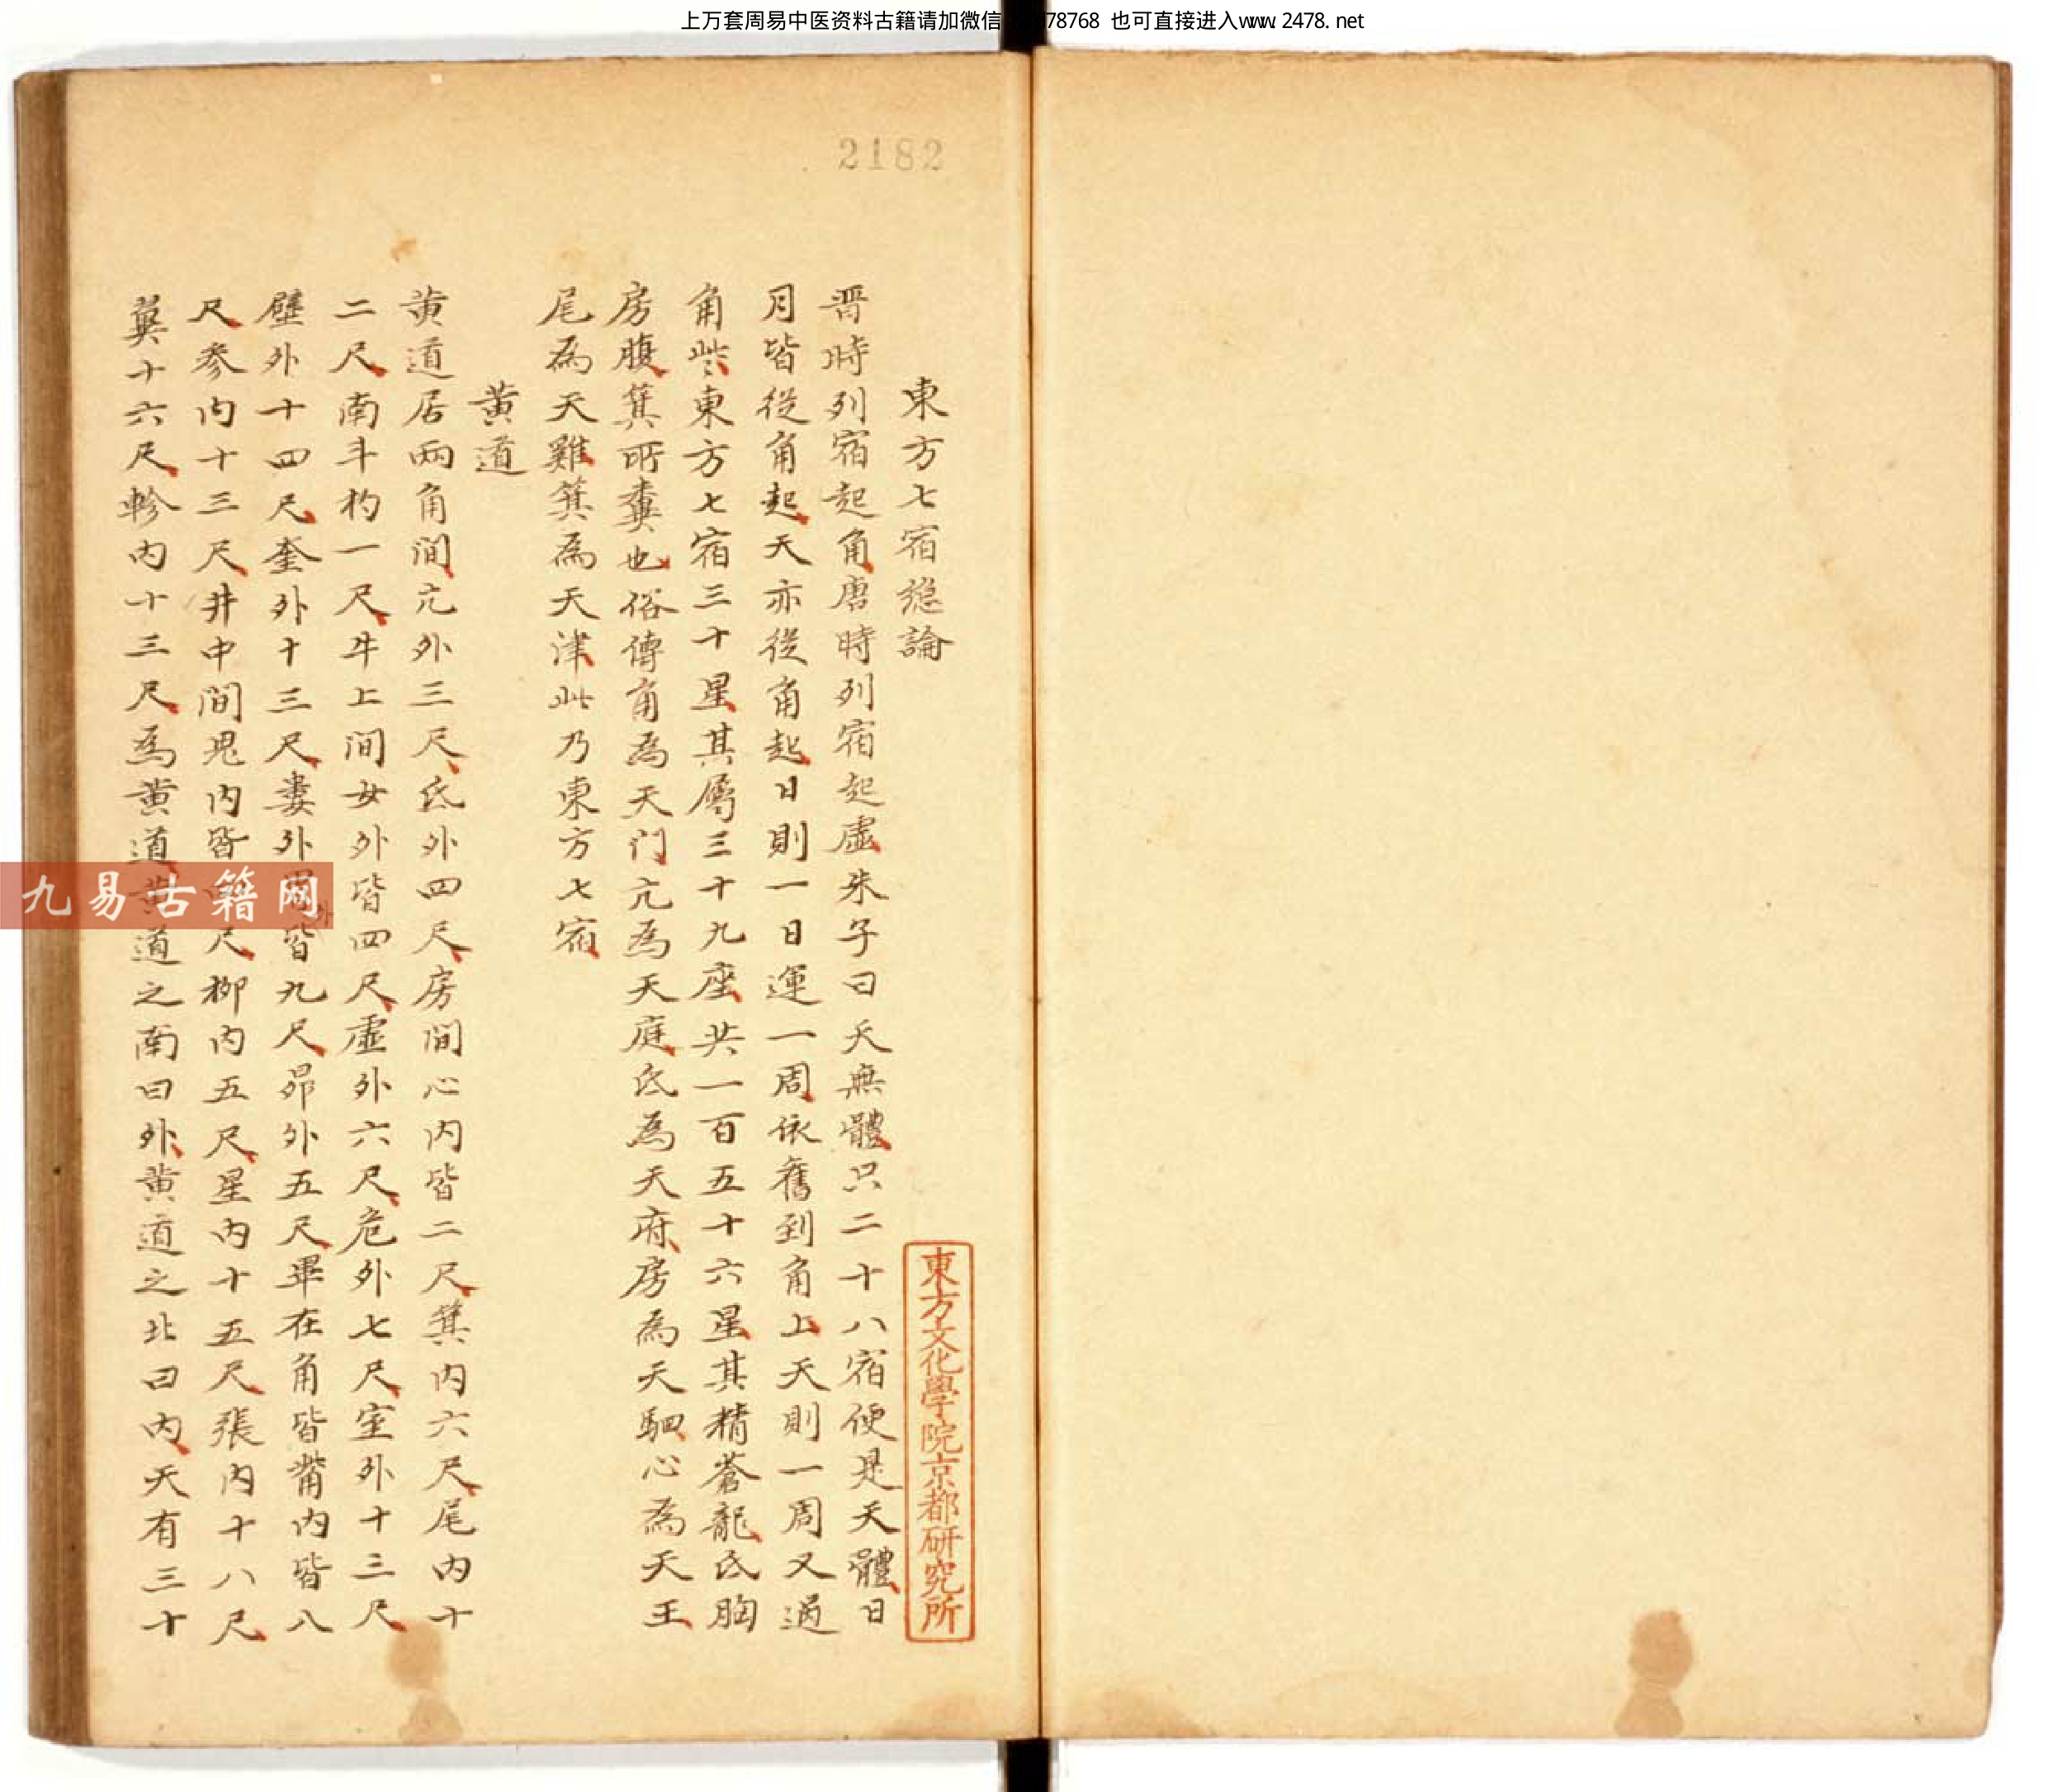 上万套周易中医资料古籍请加微信 78768 也可直接进入www.2478.net
2182
東方七宿總論
晋時列宿起角唐時列宿起虛朱子曰天無體只二十八宿便是天體日
月皆從角起天亦從角起日則一日運一周依舊到角上天則一周又過
角些東方七宿三十星其屬三十九座共一百五十六星其精蒼龍氐胸
房腹箕所糞也俗傳角為天门亢為天庭氐為天府房為天駟心為天王
尾為天雞箕為天津此乃東方七宿
黃道
黃道居兩角間亢外三尺氐外四尺房間心內皆二尺箕內六尺尾內十
二尺南斗杓一尺牛上間女外皆四尺虛外六尺危外七尺室外十三尺
壁外十四尺奎外十三尺婁外胃皆九尺昴外五尺畢在角皆觜內皆八
尺参內十三尺井中間鬼內皆尺柳內五尺星內十五尺張內十八尺
翼十六尺軫內十三尺為黃道黃道之南曰外黃道之北曰內天有三十
東方文化學院京都研究所
九易古籍网